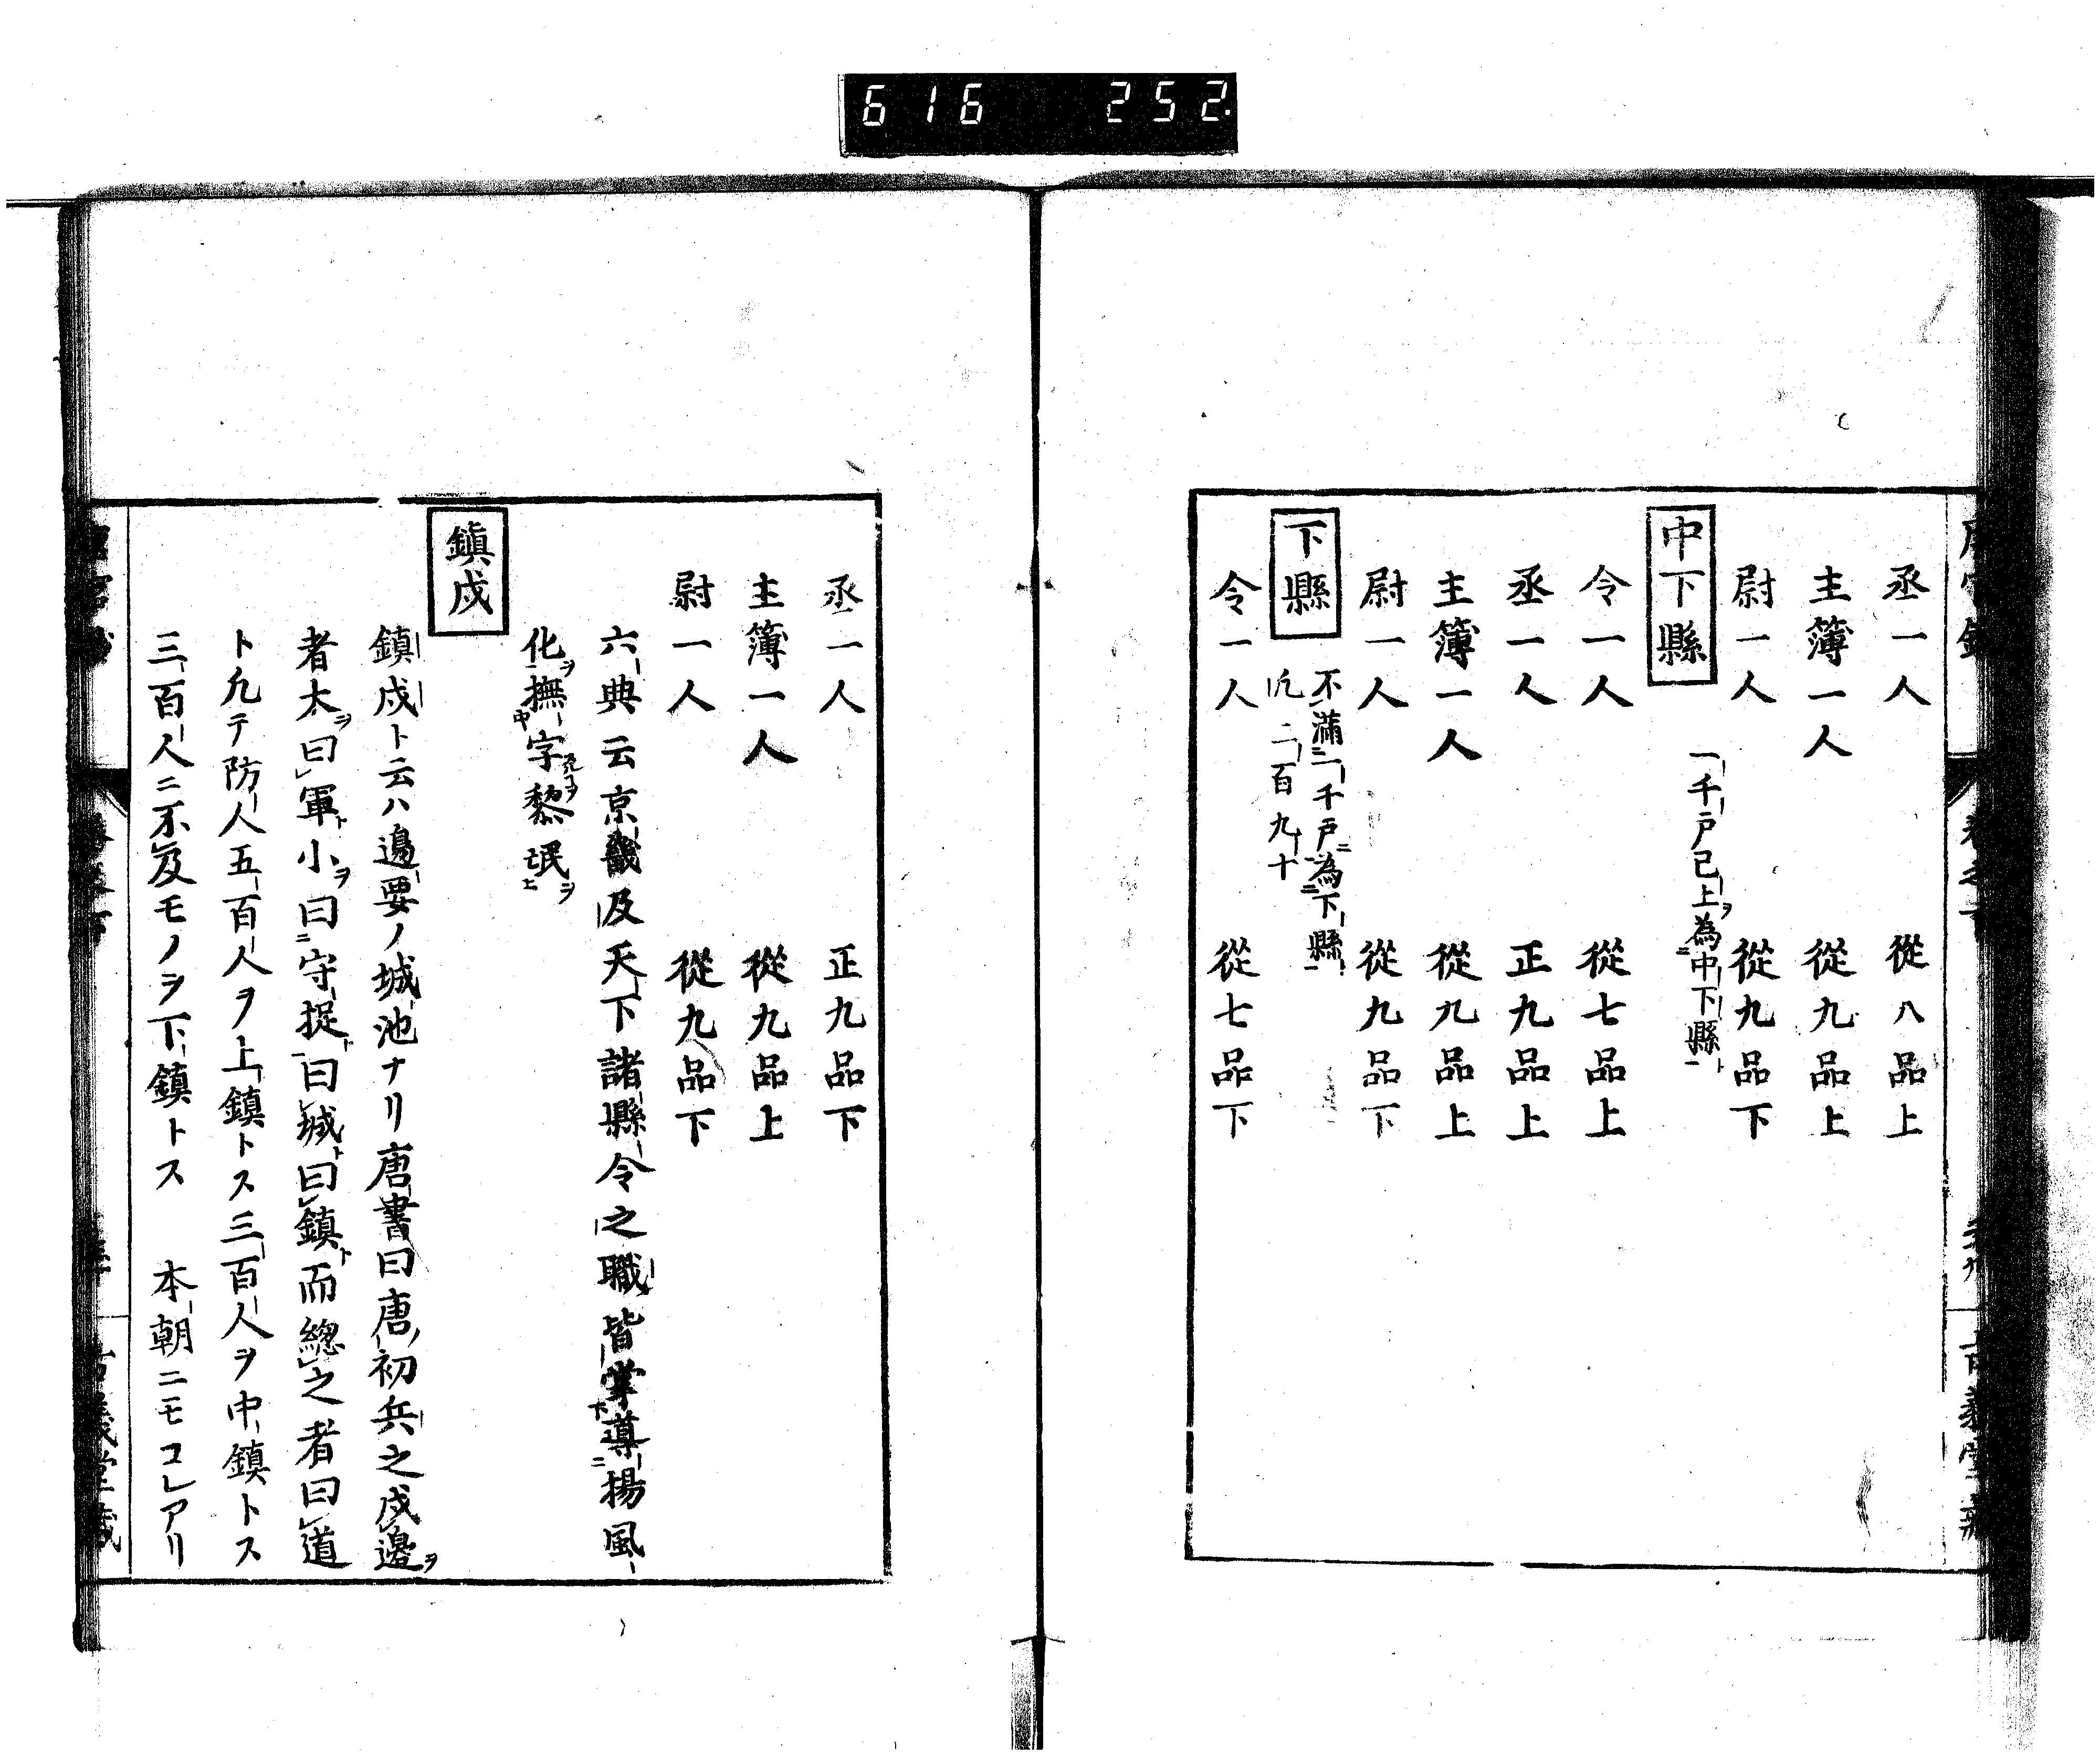 616 252
丞一人 從八品上
主簿一人 從九品上
尉一人 從九品下
中下縣 一千戸已上ヲ為中下縣ト
令一人 從七品上
丞一人 正九品上
主簿一人 從九品上
尉一人 從九品下
下縣 不滿二一千戸一為下縣ト
凡二百九十
令一人 從七品下
丞一人 正九品下
主簿一人 從九品上
尉一人 從九品下
六典云京畿及天下諸縣令之職皆掌導揚風
化ヲ撫字黎氓ヲ
鎮戍
鎮戍ト云ハ邊要ノ城池ナリ唐書曰唐ノ初兵之戍邊ヲ
者大ヲ曰軍ト小ヲ曰守捉ト曰城ト曰鎮ト而總之者曰道
ト凡テ防人五百人ヲ上鎮トス三百人ヲ中鎮トス
三百人ニ不及モノヲ下鎮トス 本朝ニモコレアリ